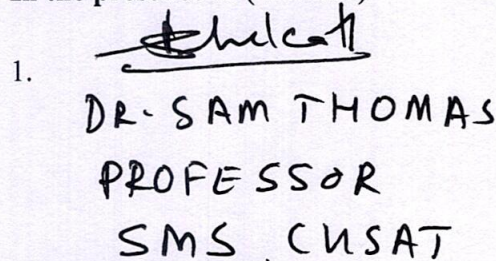 1.
DR. SAM THOMAS
PROFESSOR
SMS, CUSAT